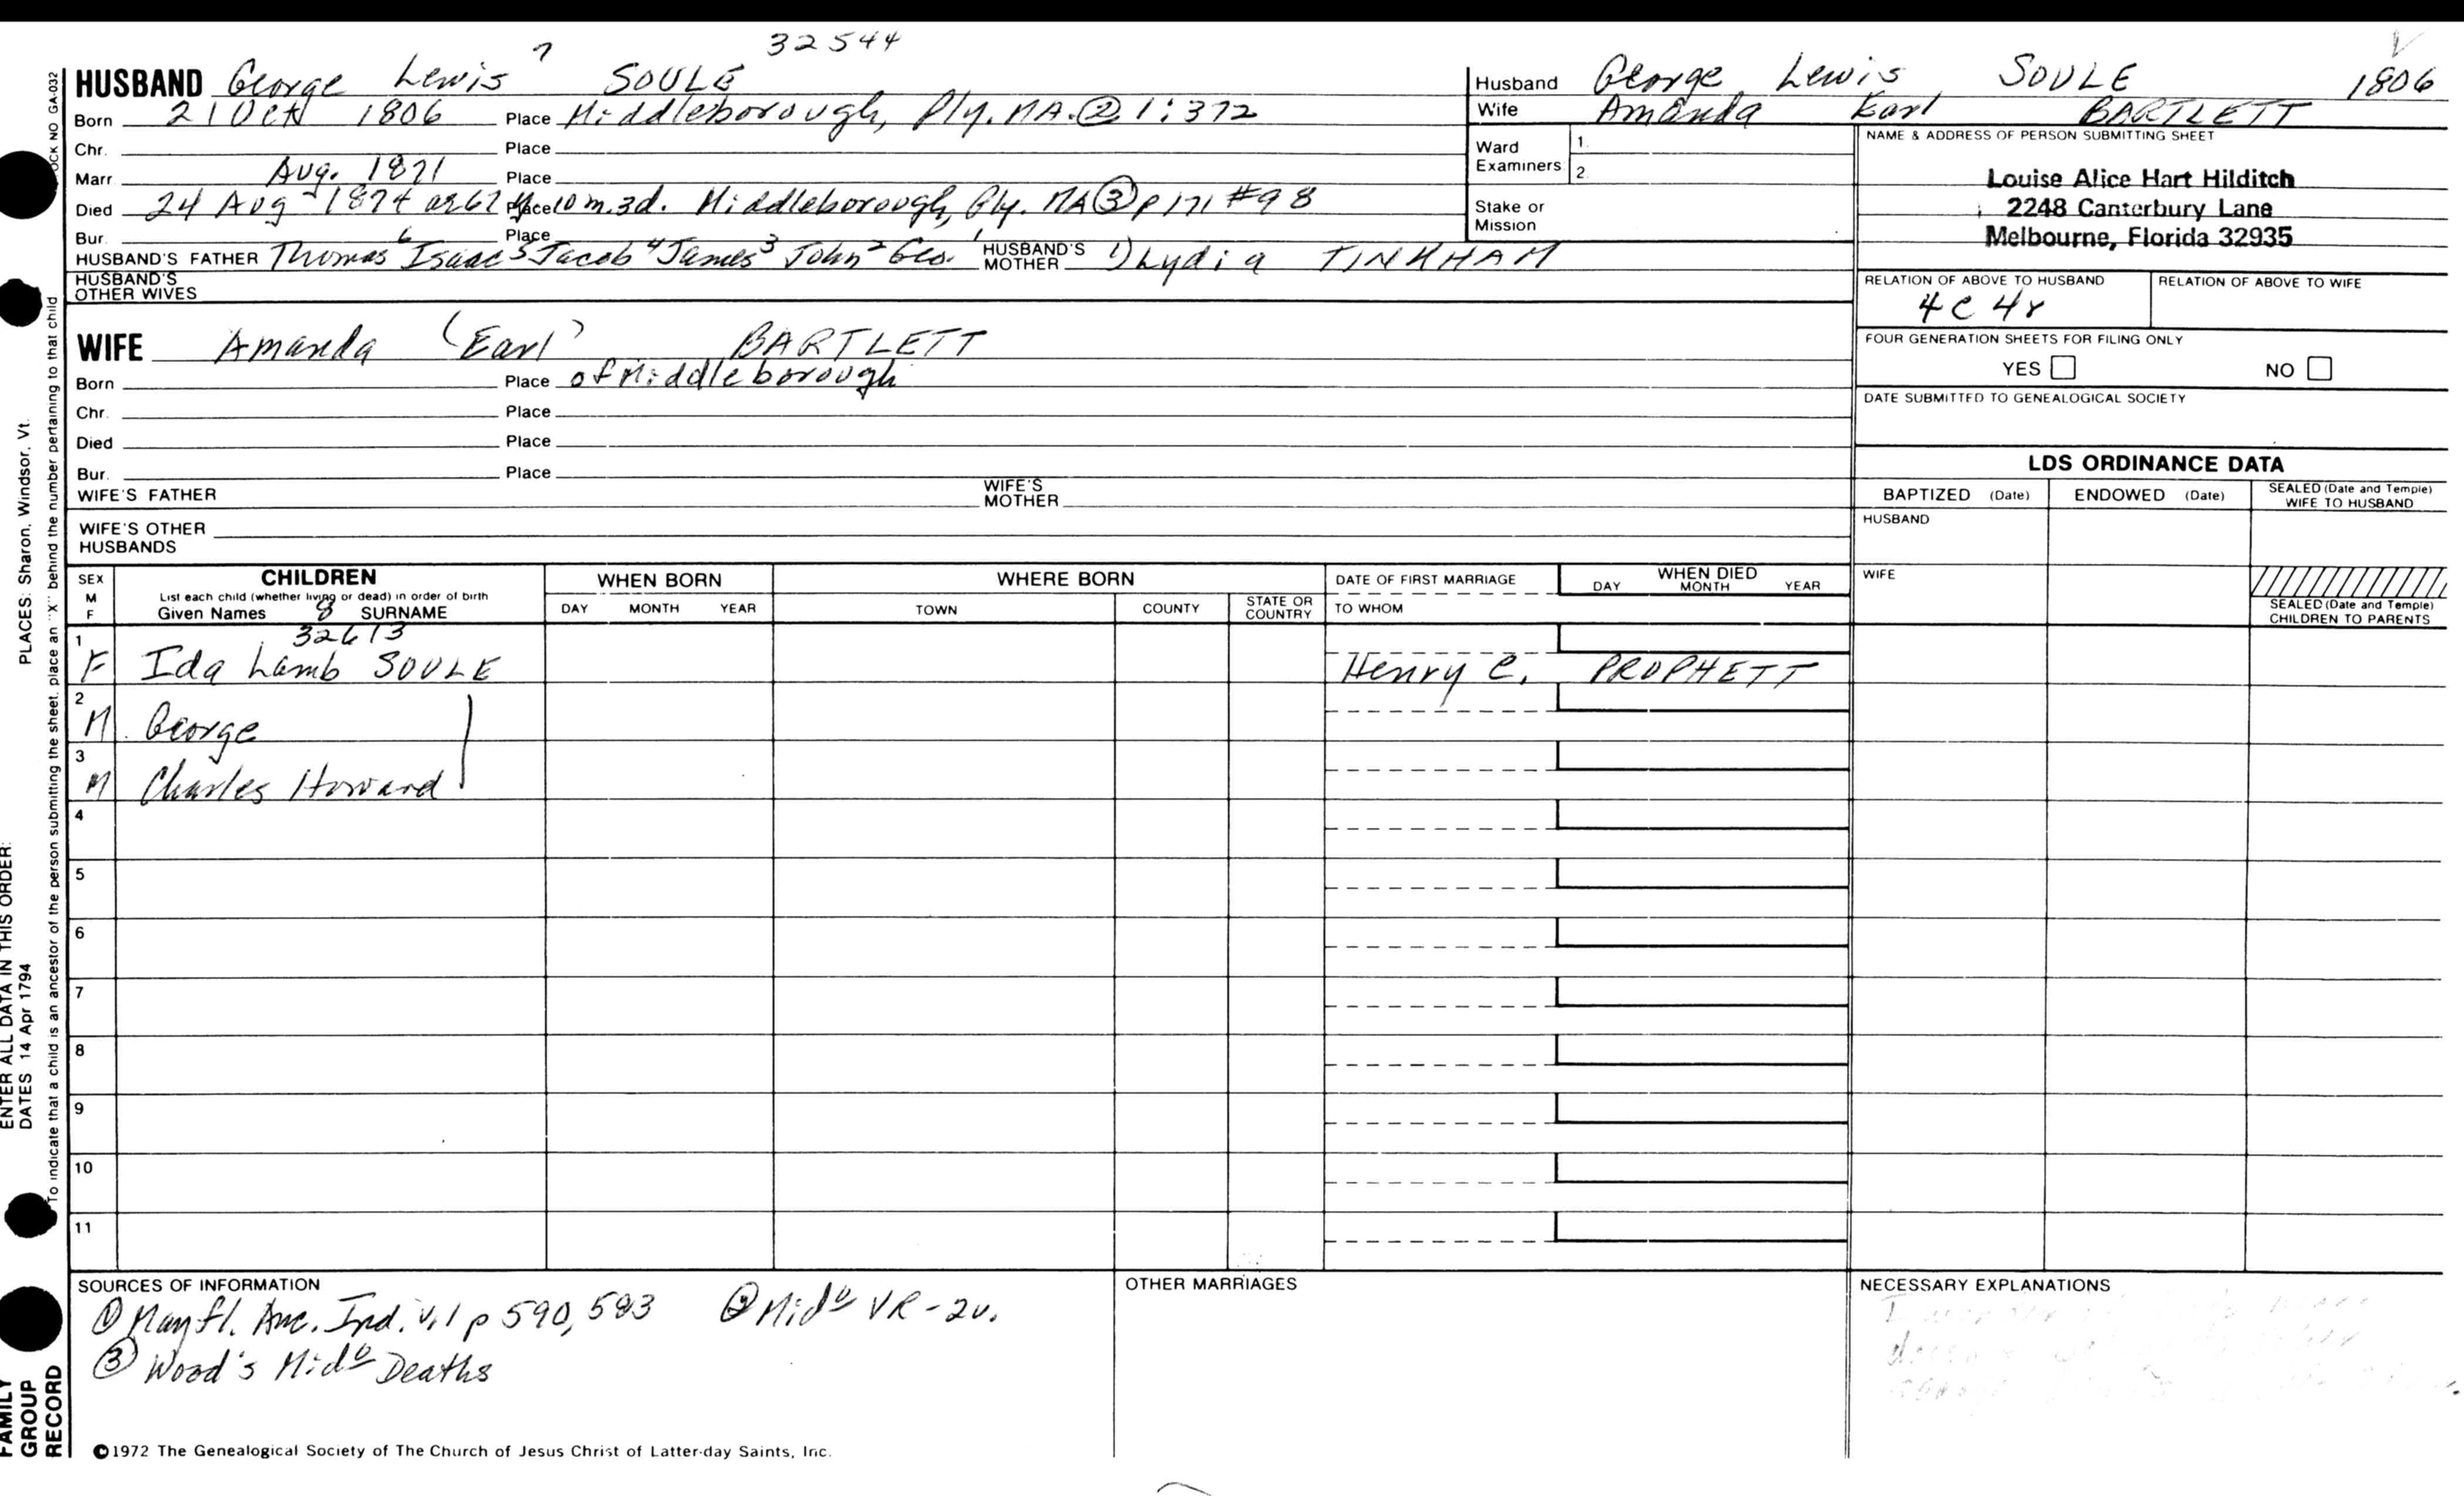 32544
HUSBAND George Lewis 7 SOULE
Born 21 Oct 1806 Place Middleborough, Ply. MA. ② 1:372
Chr. Place
Marr Aug. 1871 Place
Died 24 Aug 1874 Place 10 m. 3d. Middleborough, Ply. MA ③ p 171 #98
Bur. Place
HUSBAND'S FATHER Thomas 6 Isaac 5 Jacob 4 James 3 John 2 Geo. 1 HUSBAND'S MOTHER 1) Lydia TINKHAM
HUSBAND'S OTHER WIVES
WIFE Amanda (Earl) BARTLETT
Born Place of Middleborough
Chr. Place
Died Place
Bur. Place
WIFE'S FATHER WIFE'S MOTHER
WIFE'S OTHER HUSBANDS
Husband George Lewis SOULE 1806
Wife Amanda Earl BARTLETT
Ward Examiners 1. 2.
Stake or Mission
NAME & ADDRESS OF PERSON SUBMITTING SHEET
Louise Alice Hart Hilditch
2248 Canterbury Lane
Melbourne, Florida 32935
RELATION OF ABOVE TO HUSBAND RELATION OF ABOVE TO WIFE
4C 4r
FOUR GENERATION SHEETS FOR FILING ONLY
YES NO
DATE SUBMITTED TO GENEALOGICAL SOCIETY
LDS ORDINANCE DATA
BAPTIZED (Date) ENDOWED (Date) SEALED (Date and Temple) WIFE TO HUSBAND
HUSBAND
WIFE
SEALED (Date and Temple) CHILDREN TO PARENTS
SEX M F
CHILDREN
List each child (whether living or dead) in order of birth
Given Names 8 SURNAME
WHEN BORN
DAY MONTH YEAR
WHERE BORN
TOWN COUNTY STATE OR COUNTRY
DATE OF FIRST MARRIAGE
TO WHOM
WHEN DIED
DAY MONTH YEAR
32613
1 F Ida Lamb SOULE Henry C. PROPHETT
2 M George
3 M Charles Howard
4
5
6
7
8
9
10
11
SOURCES OF INFORMATION
① Mayfl. Anc. Ind. v.1 p 590, 593 ② Midº VR - 2v.
③ Wood's Midº Deaths
OTHER MARRIAGES
NECESSARY EXPLANATIONS
©1972 The Genealogical Society of The Church of Jesus Christ of Latter-day Saints, Inc.
OCK NO GA-032
To indicate that a child is an ancestor of the person submitting the sheet, place an "X" behind the number pertaining to that child
PLACES: Sharon, Windsor, Vt.
ENTER ALL DATA IN THIS ORDER:
DATES 14 Apr 1794
FAMILY GROUP RECORD